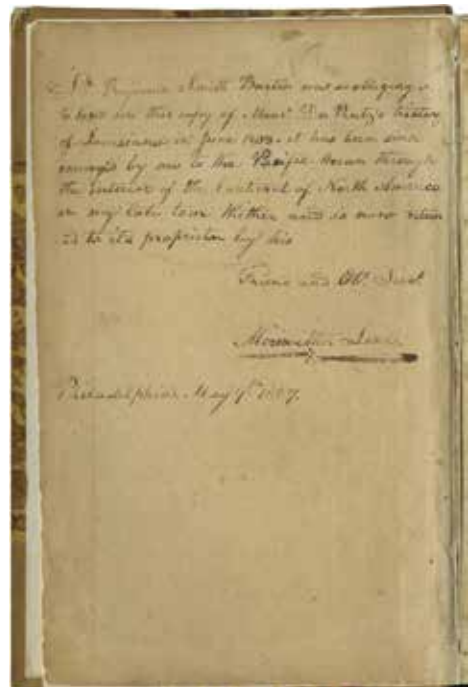 Dr. Benjamin Smith Barton was so obliging as
to lend me this copy of Monsr. Du Pratz's history
of Louisiana in June 1803. it has been since
conveyed by me to the Pacific Ocean through
the interior of the Continent of North America
on my late tour thither and is now return
ed to its proprietor by his
Friend and Obt. Servt.
Meriwether Lewis
Philadelphia May 9th. 1807.